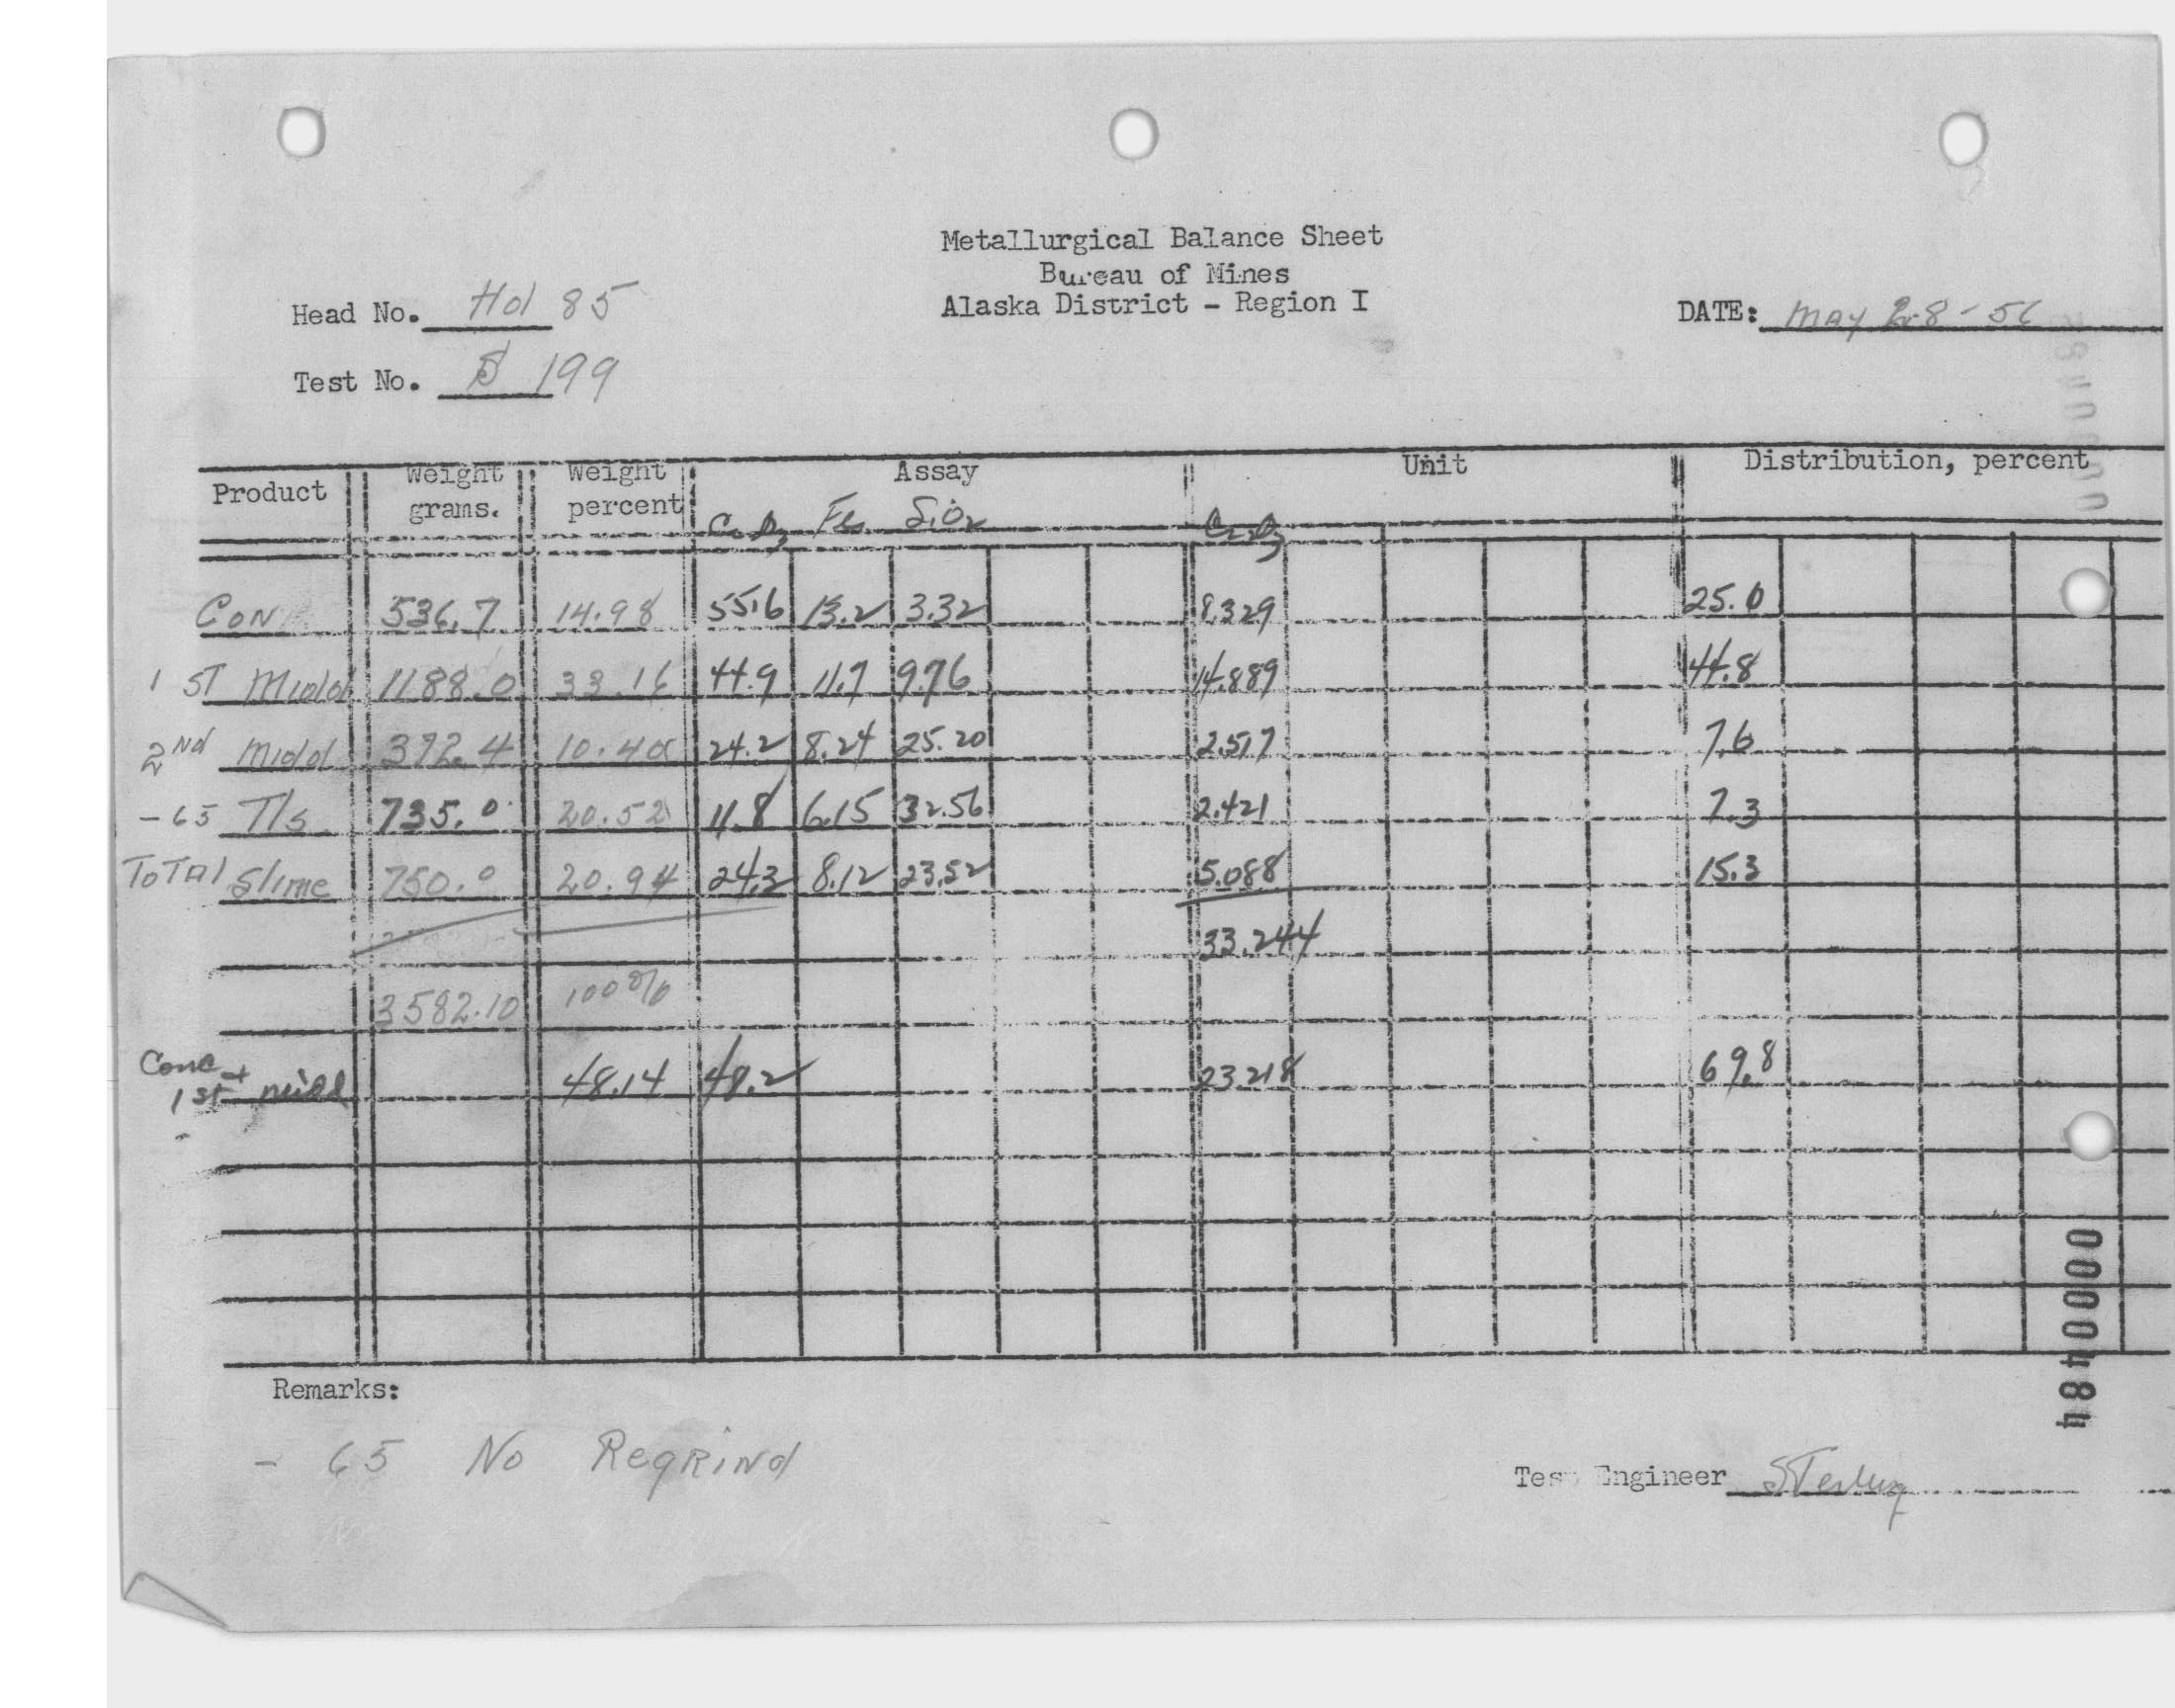 Metallurgical Balance Sheet
Bureau of Mines
Alaska District - Region I
Head No. Hol 85
DATE: May 28-56
Test No. 199
Product Weight grams. Weight percent Assay Unit Distribution, percent
Cr2O3 Fe SiO2 Cr2O3
Con 536.7 14.98 55.6 13.2 3.32 8.329 25.0
1 ST Midd 1188.0 33.16 44.9 11.7 9.76 14.889 44.8
2nd Midd 372.4 10.40 24.2 8.24 25.20 2.517 7.6
-65 T/s 735.0 20.52 11.8 6.15 32.56 2.421 7.3
Total Slime 750.0 20.94 24.3 8.12 23.52 5.088 15.3
33.244
3582.10 100%
Conc + 1st midd 48.14 48.2 23.218 69.8
Remarks:
- 65 No Regrind
Test Engineer Sterling
0000484